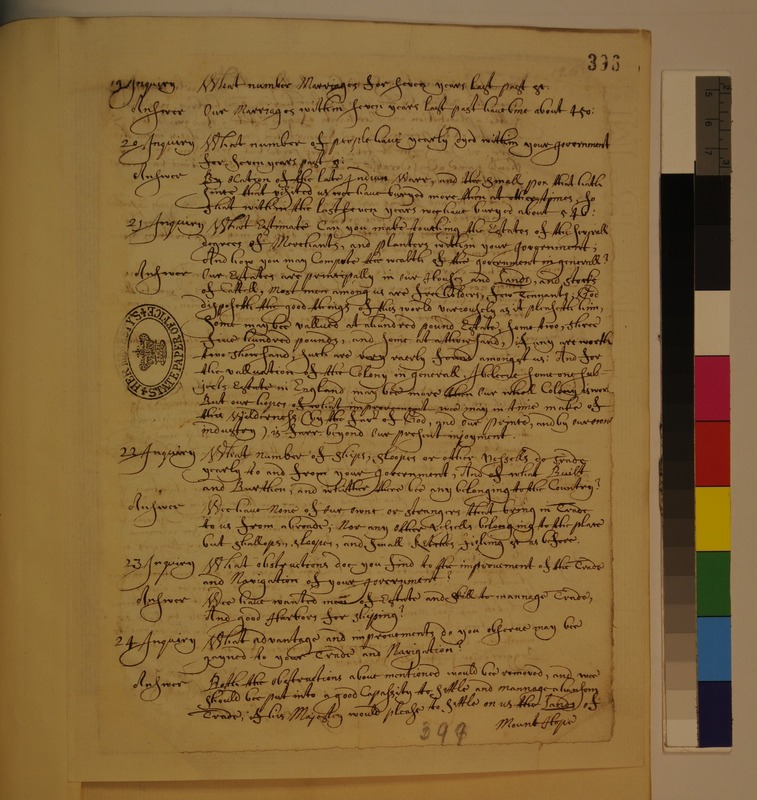 393
19 Inquiry What number Marriages for seven years last past &c:
Answer Our Marriages within seven years last past have bine about 450:
20 Inquiry What number of people have yearly dyed within your government
for seven years past &c:
Answer By ocation of the late Indian Warr, and the Small pox that hath
since that visited us wee have buryed more then at other times, so
that within the last seven years wee have buryed about
21 Inquiry What Estimate Can you make touching the Estates of the severall
degrees of Merchants, and planters within your government;
And how you may Compute the wealth of the government in generall?
Answer Our Estates are principally in our Houses and Lands, and stocks
of Cattell; Most men among us are Free holders, few Tennants; God
disposeth the good things of this world variously as it pleaseth him,
Some may bee vallued at a hundred pound Estate, some two, three
five hundred pounds, and some at a thousand; if any are worth
two thousand, such are very rarely found amongst us: And for
the valluation of the Colony in generall, I beleeve some one sub-
jects Estate in England may bee more then our whole Colony is worth
But our hopes of what improvement wee may in time make of
this Wildernesse (in the Fear of God, and our Peace, and by our owne
industry) is farr beyond our present injoyment.
22 Inquiry What number of Ships, Sloopes or other Vessells do trade
yearly to and from your government, And of what Built
and Burthen, and whither there bee any belonging to the Country?
Answer Wee have None of our owne or strangers that bring in Trade
to us from abroade; Nor any other Vessells belonging to the place
but Shallops, Sloopes, and small Ketches Fishing &c as before.
23 Inquiry What obstructions doe you find to the improvement of the Trade
and Navigation of your government?
Answer Wee have wanted men of Estate and skill to mannage Trade,
And good Harbors for Shipping?
24 Inquiry What advantage and improvements do you observe may bee
gayned to your Trade and Navigation?
Answer Both the obstructions above mentioned would bee removed, and wee
should bee put into a good Capassity to settle and mannage a hansom
Trade, if his Majesty would please to settle on us the Lands of
Mount Hope
399
STATE PAPER OFFICE